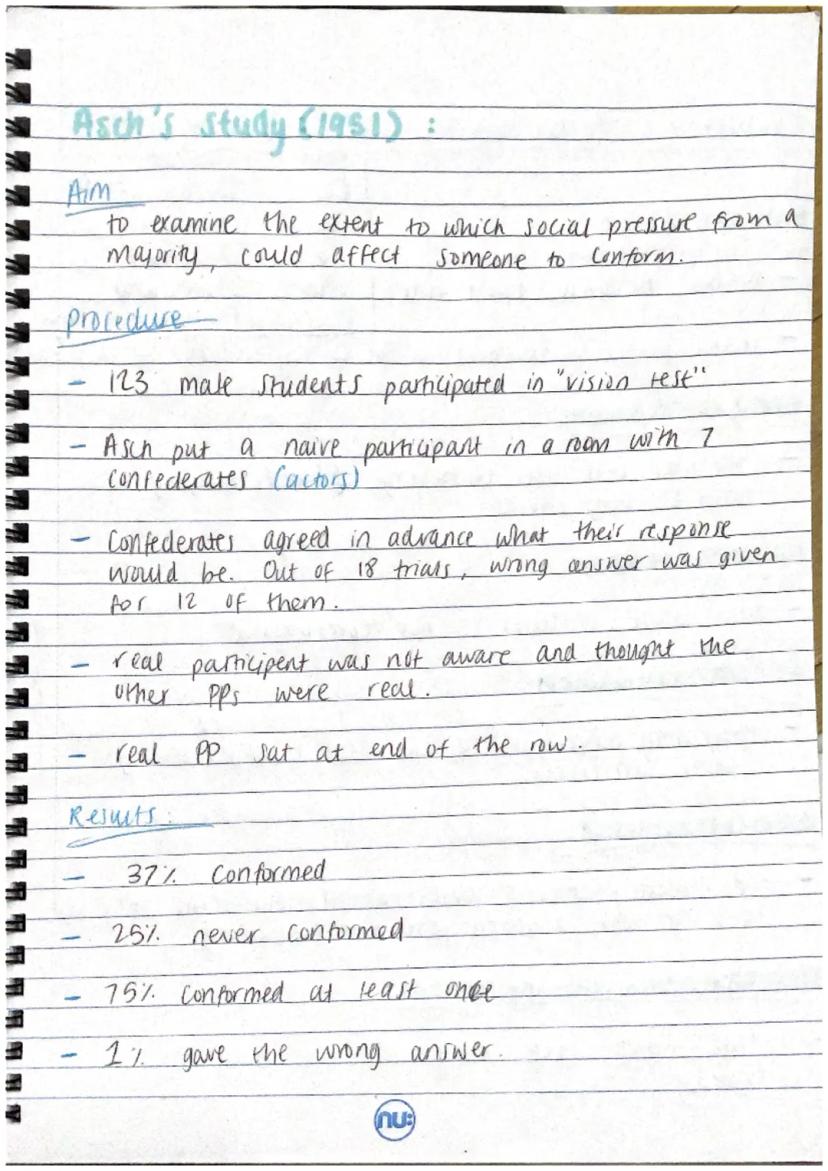 Asch's study (1951) :
Aim
to examine the extent to which social pressure from a
majority, could affect someone to conform.
procedure
- 123 male students participated in "vision test"
- Asch put a naive participant in a room with 7
confederates (actors)
- Confederates agreed in advance what their response
would be. Out of 18 trials, wrong answer was given
for 12 of them.
- real participent was not aware and thought the
other PPs were real.
- real PP sat at end of the row.
Results:
- 37% conformed
- 25% never conformed
- 75% conformed at least once
- 1% gave the wrong answer.
nu: